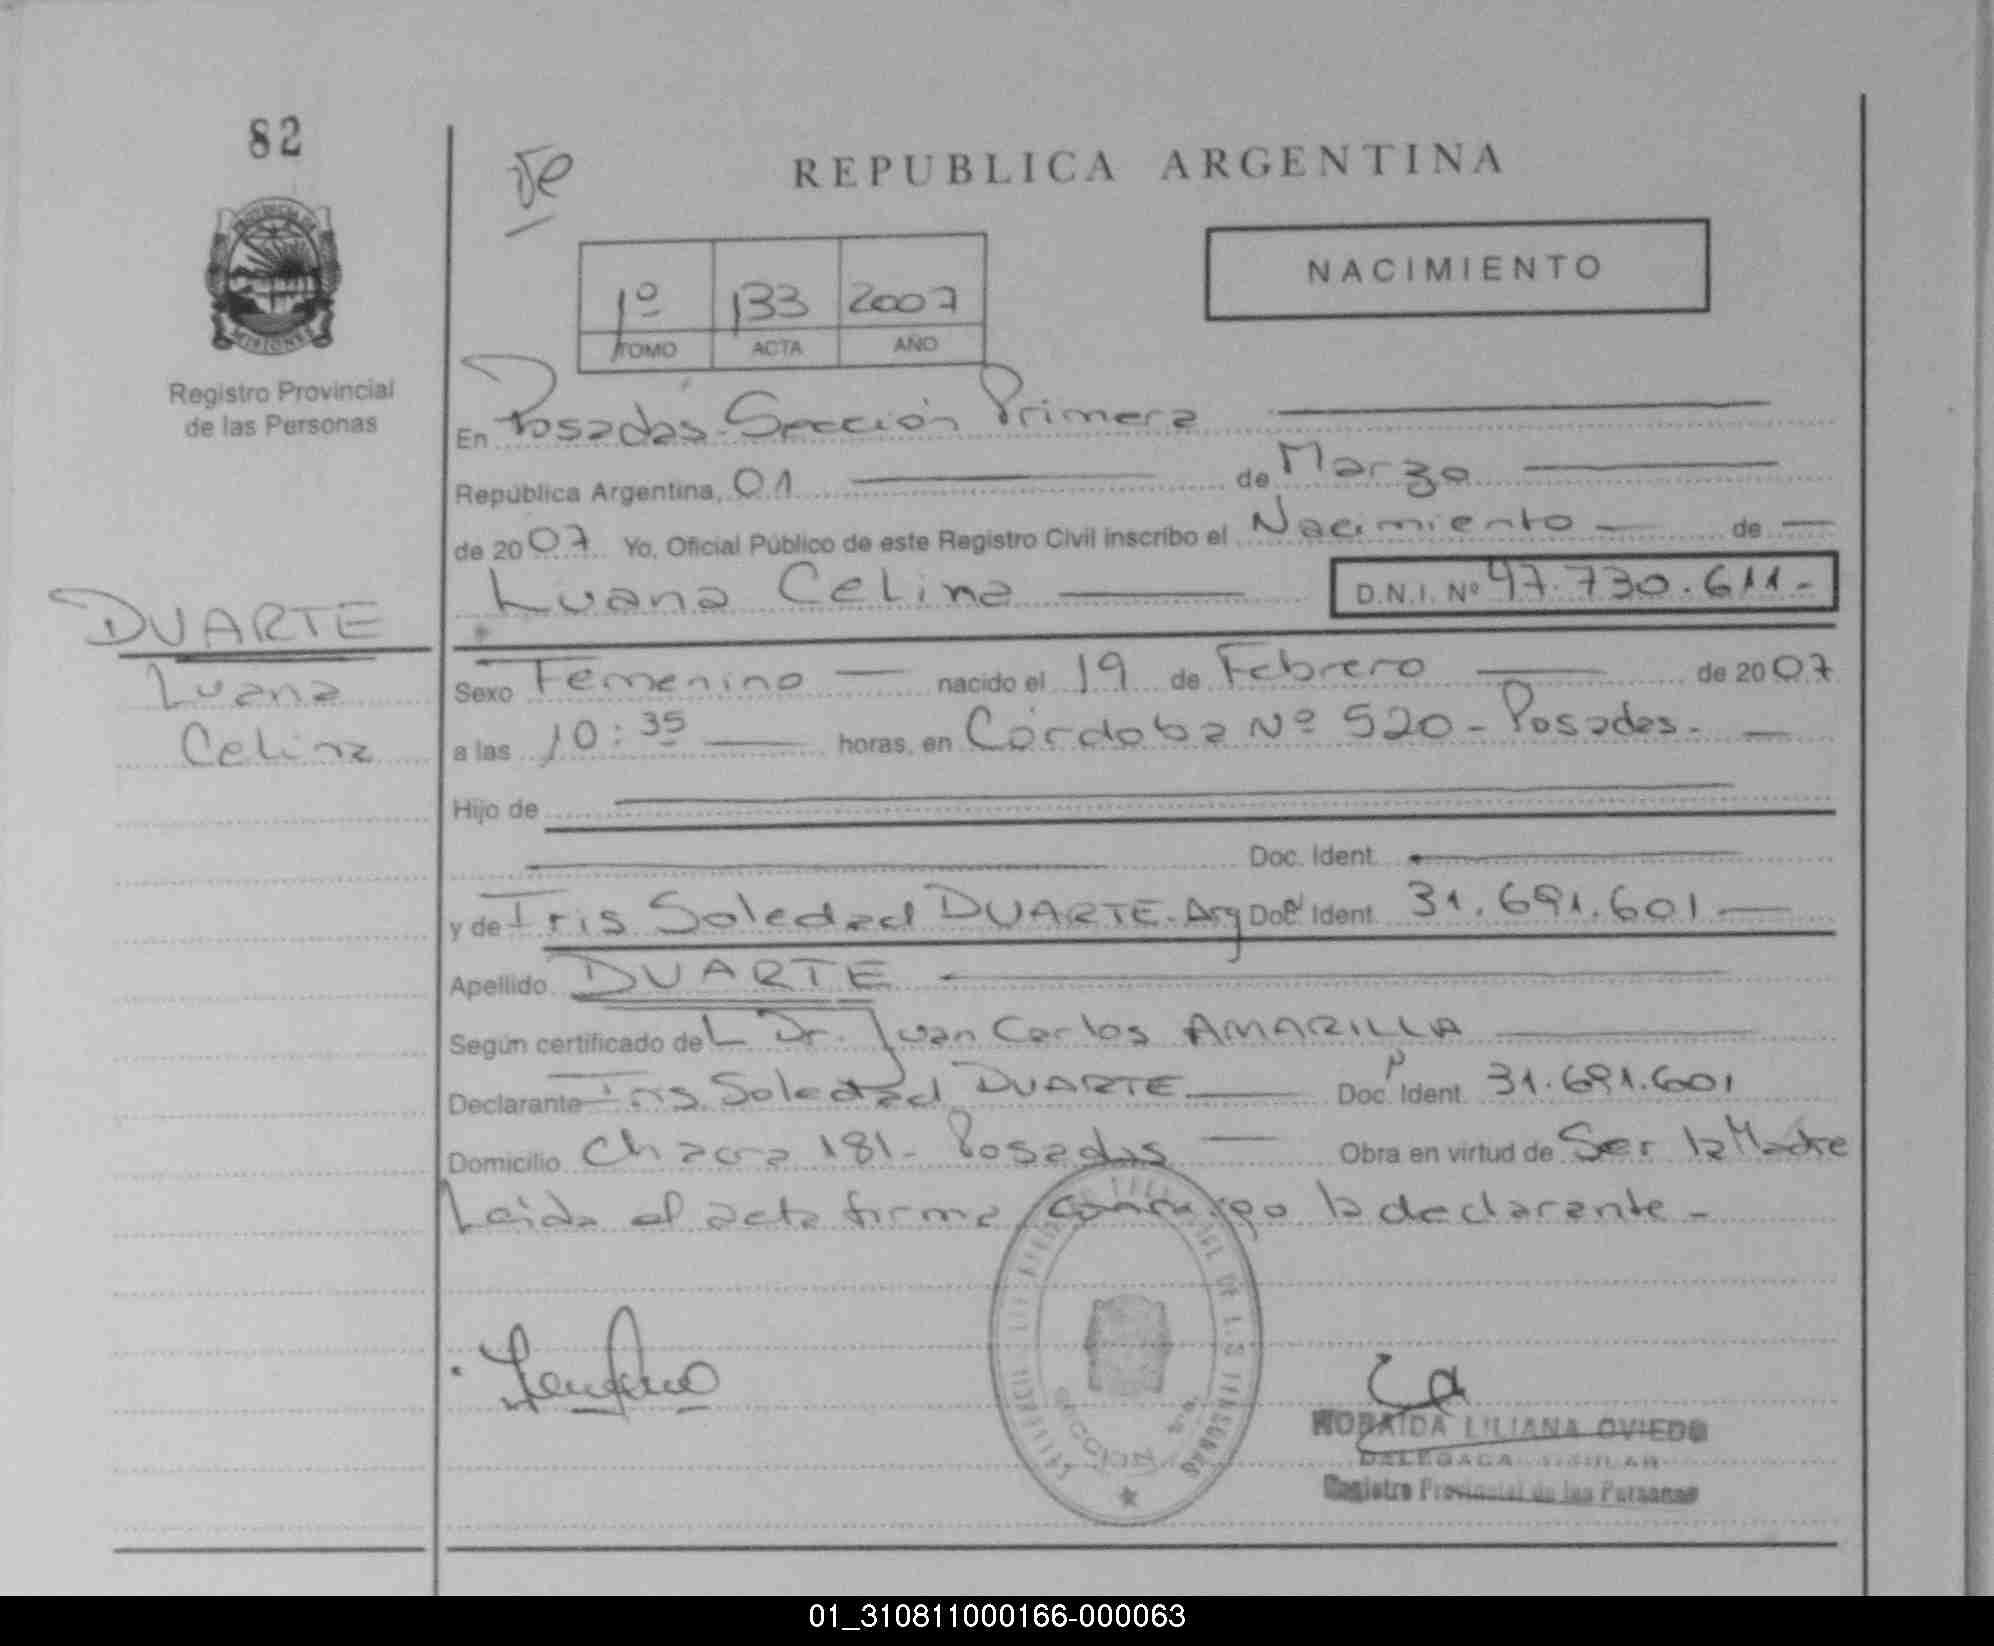 82
REPUBLICA ARGENTINA
PROVINCIA DE
MISIONES
Registro Provincial
de las Personas
1º 133 2007
TOMO ACTA AÑO
NACIMIENTO
En Posadas-Sección Primera
República Argentina, 01 de Marzo
de 2007 Yo, Oficial Público de este Registro Civil inscribo el Nacimiento de
Luana Celina D.N.I. Nº 47.730.611.-
DUARTE
Luana
Celina
Sexo Femenino nacido el 19 de Febrero de 2007
a las 10:35 horas, en Córdoba Nº 520-Posadas.
Hijo de
Doc. Ident.
y de Iris Soledad DUARTE. Arg Doc. Ident. 31.691.601
Apellido DUARTE
Según certificado de L Dr. Juan Carlos AMARILLA
Declarante Iris Soledad DUARTE Doc. Ident. 31.691.601
Domicilio Chacra 181- Posadas Obra en virtud de Ser la Madre
Leída el acta firma conmigo la declarante-
DE LAS PERSONAS
SECCION
LILIANA OVIEDO
DELEGADA TITULAR
Registro Provincial de las Personas
01_310811000166-000063